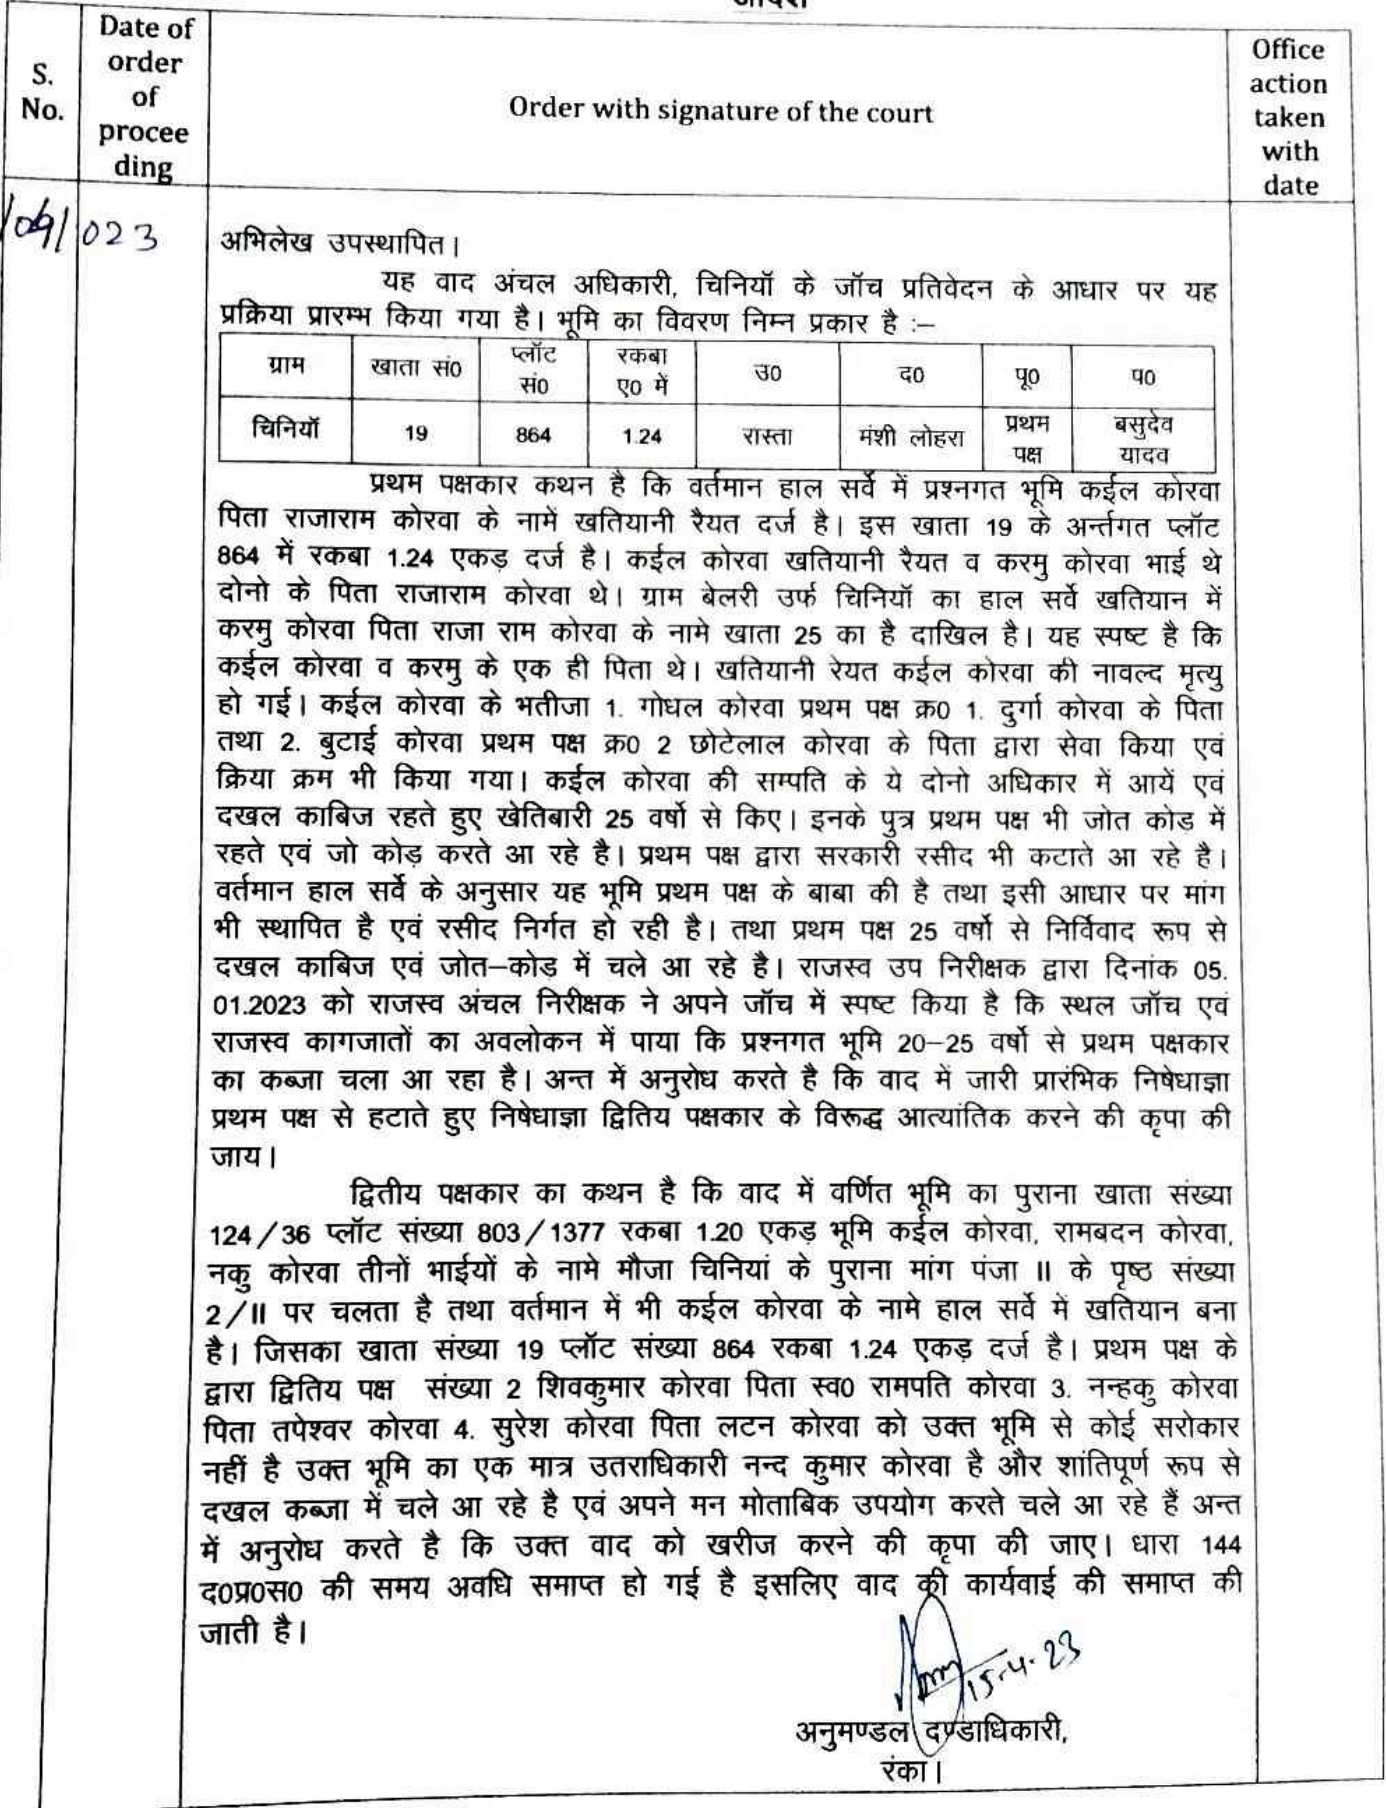 आदेश
S. No.
Date of order of procee ding
Order with signature of the court
Office action taken with date
/04/ 023
अभिलेख उपस्थापित।
यह वाद अंचल अधिकारी, चिनियॉ के जॉच प्रतिवेदन के आधार पर यह
प्रक्रिया प्रारम्भ किया गया है। भूमि का विवरण निम्न प्रकार है :–
ग्राम खाता सं0 प्लॉट सं0 रकबा ए0 में उ0 द0 पू0 प0
चिनियॉ 19 864 1.24 रास्ता मंशी लोहरा प्रथम पक्ष बसुदेव यादव
प्रथम पक्षकार कथन है कि वर्तमान हाल सर्वे में प्रश्नगत भूमि कईल कोरवा
पिता राजाराम कोरवा के नामें खतियानी रैयत दर्ज है। इस खाता 19 के अर्न्तगत प्लॉट
864 में रकबा 1.24 एकड़ दर्ज है। कईल कोरवा खतियानी रैयत व करमु कोरवा भाई थे
दोनो के पिता राजाराम कोरवा थे। ग्राम बेलरी उर्फ चिनियॉ का हाल सर्वे खतियान में
करमु कोरवा पिता राजा राम कोरवा के नामे खाता 25 का है दाखिल है। यह स्पष्ट है कि
कईल कोरवा व करमु के एक ही पिता थे। खतियानी रेयत कईल कोरवा की नावल्द मृत्यु
हो गई। कईल कोरवा के भतीजा 1. गोधल कोरवा प्रथम पक्ष क्र0 1. दुर्गा कोरवा के पिता
तथा 2. बुटाई कोरवा प्रथम पक्ष क्र0 2 छोटेलाल कोरवा के पिता द्वारा सेवा किया एवं
क्रिया क्रम भी किया गया। कईल कोरवा की सम्पति के ये दोनो अधिकार में आयें एवं
दखल काबिज रहते हुए खेतिबारी 25 वर्षो से किए। इनके पुत्र प्रथम पक्ष भी जोत कोड में
रहते एवं जो कोड़ करते आ रहे है। प्रथम पक्ष द्वारा सरकारी रसीद भी कटाते आ रहे है।
वर्तमान हाल सर्वे के अनुसार यह भूमि प्रथम पक्ष के बाबा की है तथा इसी आधार पर मांग
भी स्थापित है एवं रसीद निर्गत हो रही है। तथा प्रथम पक्ष 25 वर्षो से निर्विवाद रूप से
दखल काबिज एवं जोत–कोड़ में चले आ रहे है। राजस्व उप निरीक्षक द्वारा दिनांक 05.
01.2023 को राजस्व अंचल निरीक्षक ने अपने जॉच में स्पष्ट किया है कि स्थल जॉच एवं
राजस्व कागजातों का अवलोकन में पाया कि प्रश्नगत भूमि 20–25 वर्षो से प्रथम पक्षकार
का कब्जा चला आ रहा है। अन्त में अनुरोध करते है कि वाद में जारी प्रारंभिक निषेधाज्ञा
प्रथम पक्ष से हटाते हुए निषेधाज्ञा द्वितिय पक्षकार के विरूद्ध आत्यांतिक करने की कृपा की
जाय।
द्वितीय पक्षकार का कथन है कि वाद में वर्णित भूमि का पुराना खाता संख्या
124/36 प्लॉट संख्या 803/1377 रकबा 1.20 एकड़ भूमि कईल कोरवा, रामबदन कोरवा,
नकु कोरवा तीनों भाईयों के नामे मौजा चिनियां के पुराना मांग पंजा II के पृष्ठ संख्या
2/II पर चलता है तथा वर्तमान में भी कईल कोरवा के नामे हाल सर्वे में खतियान बना
है। जिसका खाता संख्या 19 प्लॉट संख्या 864 रकबा 1.24 एकड़ दर्ज है। प्रथम पक्ष के
द्वारा द्वितिय पक्ष संख्या 2 शिवकुमार कोरवा पिता स्व0 रामपति कोरवा 3. नन्हकु कोरवा
पिता तपेश्वर कोरवा 4. सुरेश कोरवा पिता लटन कोरवा को उक्त भूमि से कोई सरोकार
नहीं है उक्त भूमि का एक मात्र उतराधिकारी नन्द कुमार कोरवा है और शांतिपूर्ण रूप से
दखल कब्जा में चले आ रहे है एवं अपने मन मोताबिक उपयोग करते चले आ रहे हैं अन्त
में अनुरोध करते है कि उक्त वाद को खरीज करने की कृपा की जाए। धारा 144
द0प्र0स0 की समय अवधि समाप्त हो गई है इसलिए वाद की कार्यवाई की समाप्त की
जाती है।
15-4-23
अनुमण्डल दण्डाधिकारी,
रंका।